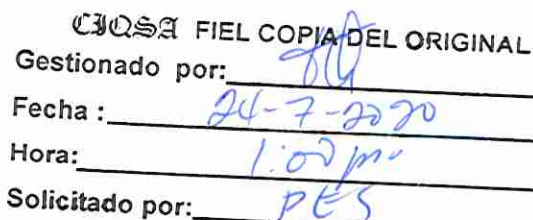 CIQSA FIEL COPIA DEL ORIGINAL
Gestionado por:
Fecha : 24-7-2020
Hora: 1:00 pm
Solicitado por: PES